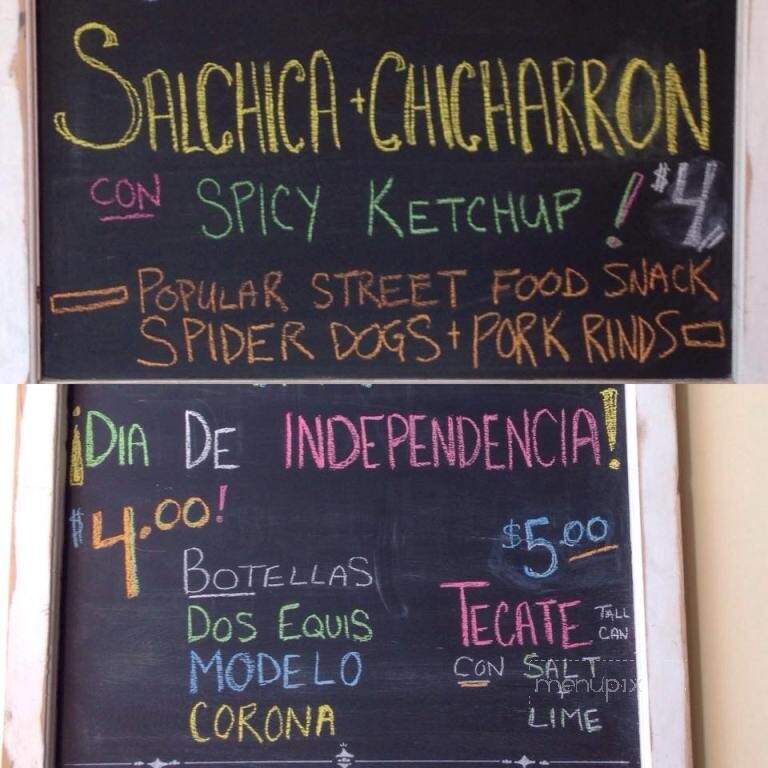 SALCHICA + CHICHARRON
CON SPICY KETCHUP! $4
POPULAR STREET FOOD SNACK
SPIDER DOGS + PORK RINDS
¡DIA DE INDEPENDENCIA!
$4.00!
BOTELLAS
DOS EQUIS
MODELO
CORONA
$5.00
TECATE TALL CAN
CON SALT
+
LIME
menupix